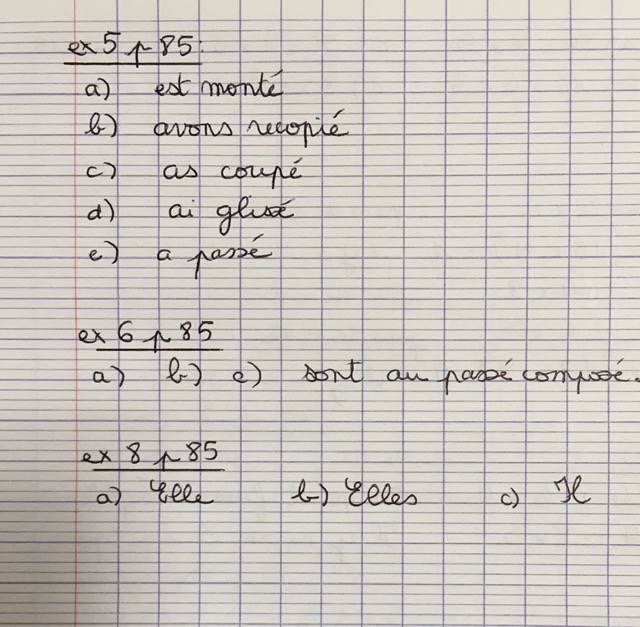 ex 5 p 85:
a) est monté
b) avons recopié
c) as coupé
d) ai glissé
e) a passé
ex 6 p 85
a) b) e) sont au passé composé.
ex 8 p 85
a) Elle b) Elles c) Il